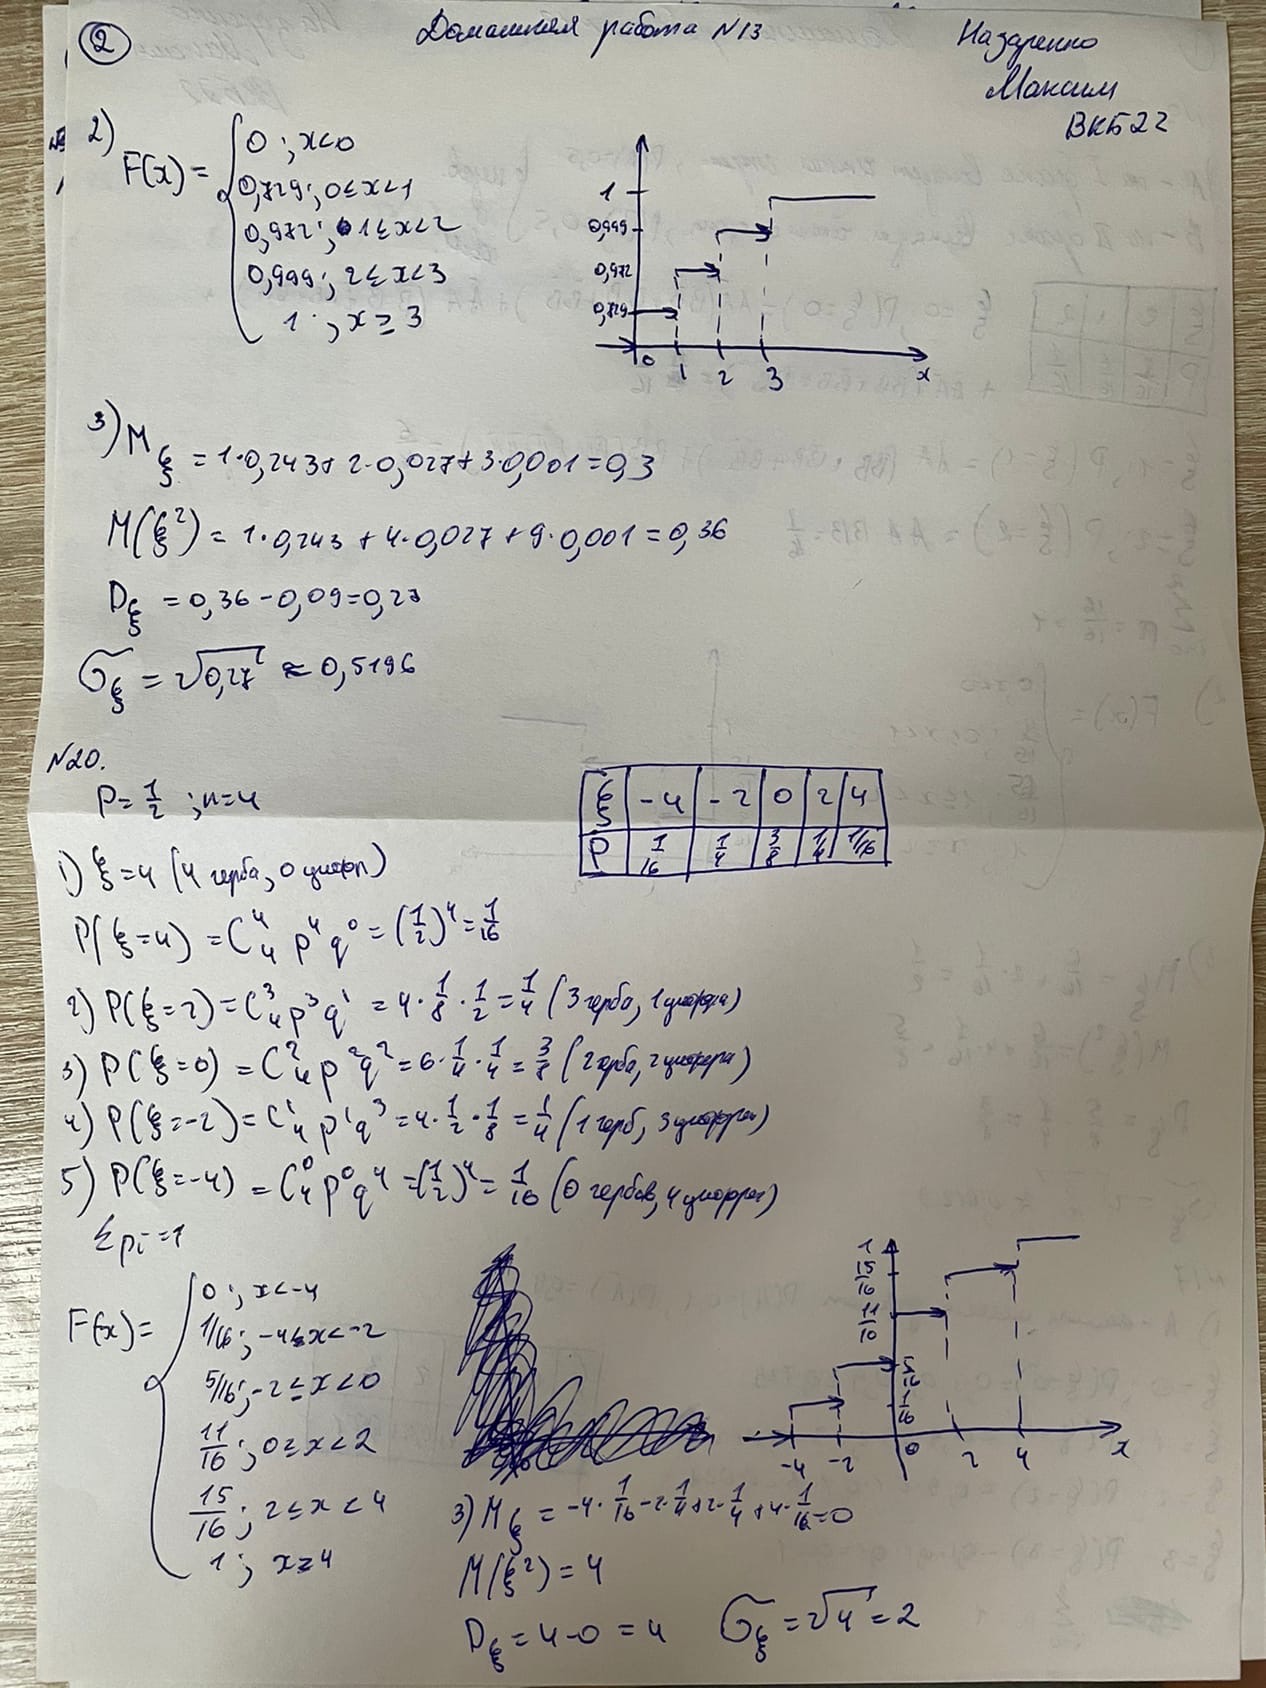 2
Домашняя работа N13
Назаренко
Максим
ВКБ22
2)
F(x) = { 0 ; x<0
0,729 ; 0≤x<1
0,972 ; 1≤x<2
0,999 ; 2≤x<3
1 ; x≥3
1
0,999
0,972
0,729
0 1 2 3 x
3) Mξ = 1·0,243 + 2·0,027 + 3·0,001 = 0,3
M(ξ²) = 1·0,243 + 4·0,027 + 9·0,001 = 0,36
Dξ = 0,36 - 0,09 = 0,27
σξ = √0,27 ≈ 0,5196
N20.
P = 1/2 ; n = 4
ξ | -4 | -2 | 0 | 2 | 4
P | 1/16 | 1/4 | 3/8 | 1/4 | 1/16
1) ξ = 4 (4 герба, 0 цифр)
P(ξ=4) = C₄⁴ p⁴ q⁰ = (1/2)⁴ = 1/16
2) P(ξ=2) = C₄³ p³ q¹ = 4 · 1/8 · 1/2 = 1/4 (3 герба, 1 цифра)
3) P(ξ=0) = C₄² p² q² = 6 · 1/4 · 1/4 = 3/8 (2 герба, 2 цифры)
4) P(ξ=-2) = C₄¹ p¹ q³ = 4 · 1/2 · 1/8 = 1/4 (1 герб, 3 цифры)
5) P(ξ=-4) = C₄⁰ p⁰ q⁴ = (1/2)⁴ = 1/16 (0 гербов, 4 цифры)
Σpi = 1
F(x) = { 0 ; x<-4
1/16 ; -4≤x<-2
5/16 ; -2≤x<0
11/16 ; 0≥x<2
15/16 ; 2≤x<4
1 ; x≥4
1
15/16
11/10
5/16
1/16
-4 -2 0 2 4 x
3) Mξ = -4 · 1/16 - 2 · 1/4 + 2 · 1/4 + 4 · 1/16 = 0
M(ξ²) = 4
Dξ = 4 - 0 = 4 σξ = √4 = 2